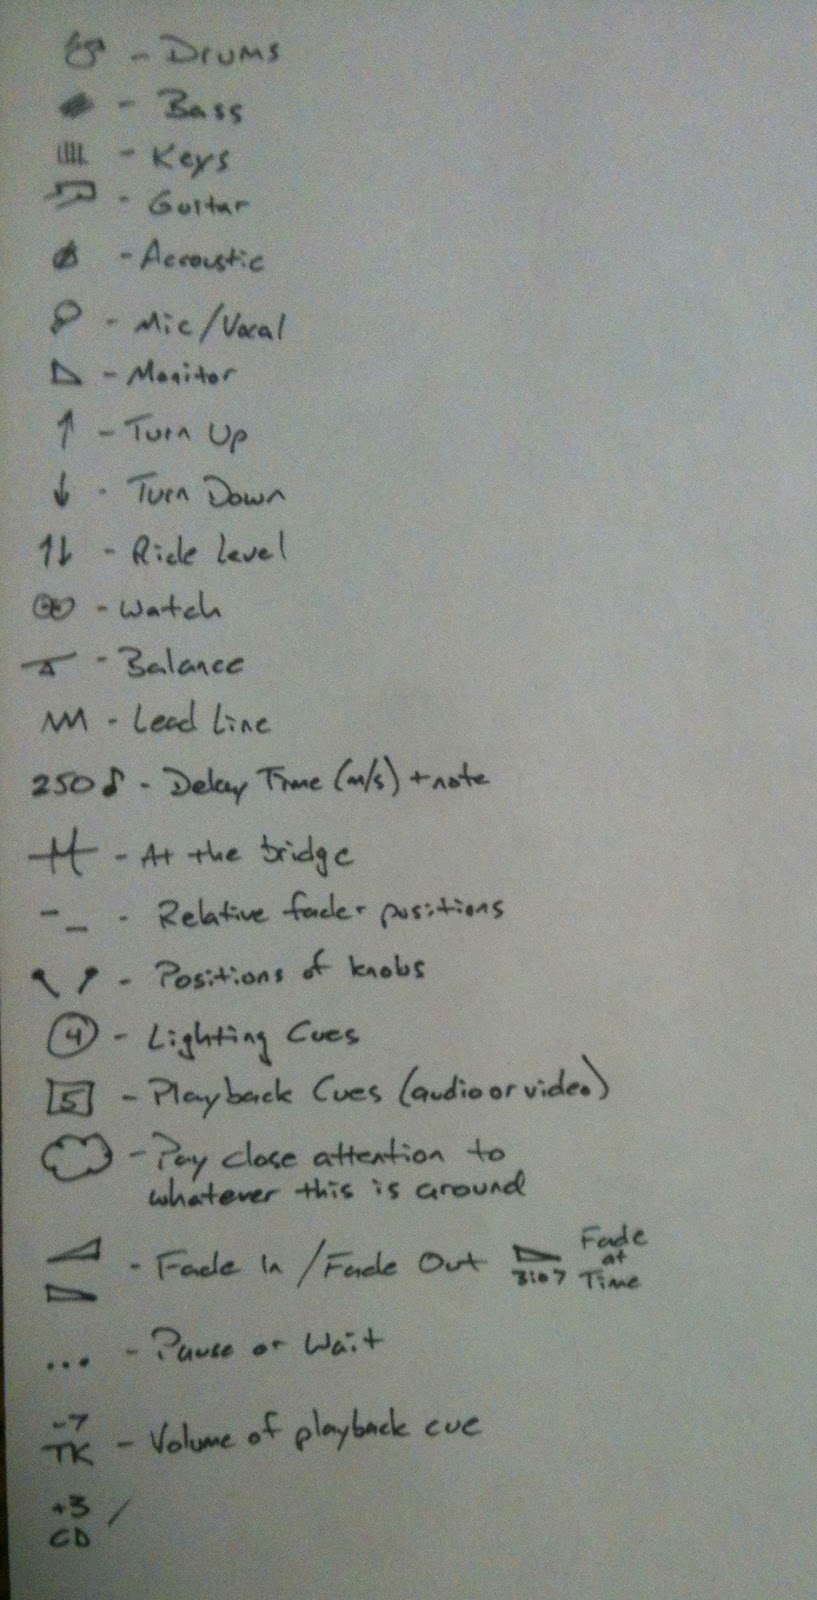 - Drums
- Bass
- Keys
- Guitar
- Accoustic
- Mic/Vocal
- Monitor
↑ - Turn Up
↓ - Turn Down
↑↓ - Ride Level
- Watch
- Balance
- Lead Line
250♪ - Delay Time (m/s) + note
- At the bridge
- Relative fader positions
- Positions of knobs
4 - Lighting Cues
5 - Playback Cues (audio or video)
- Pay close attention to
whatever this is around
- Fade In / Fade Out 3:07 Fade at Time
... - Pause or Wait
-7
TK - Volume of playback cue
+3 /
CD